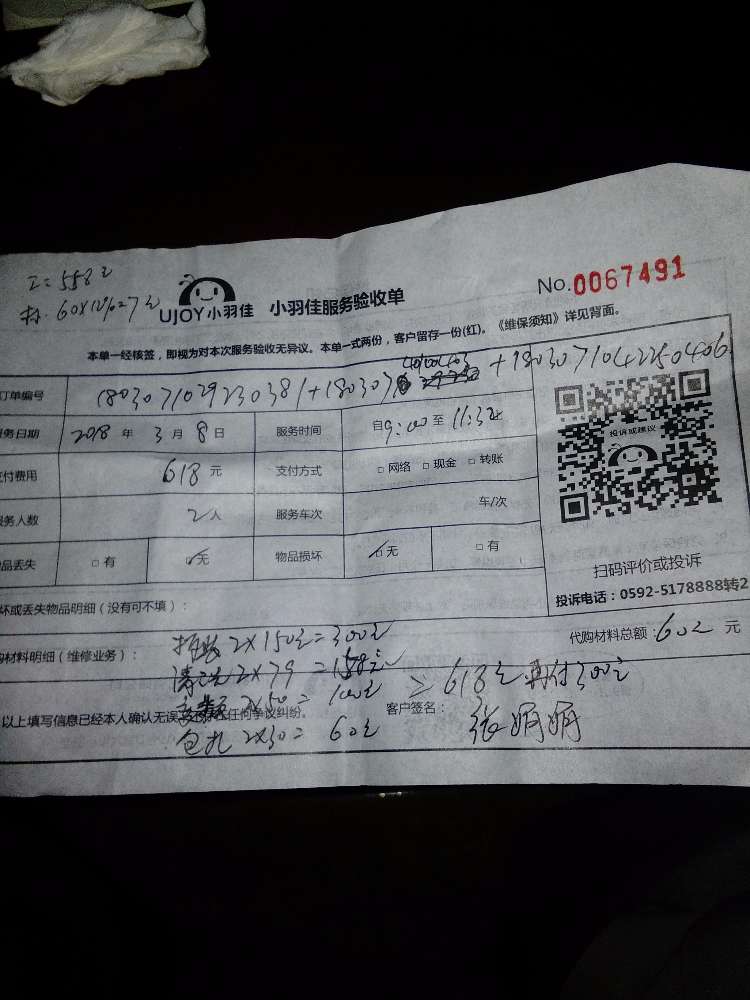 工=558元
材. 60×12%=7元
UJOY小羽佳 小羽佳服务验收单
No.0067491
本单一经核签，即视为对本次服务验收无异议。本单一式两份，客户留存一份(红)。《维保须知》详见背面。
订单编号 1803071029230381+180307 +1803071042250406
服务日期 2018 年 3 月 8 日 服务时间 自9:00至11:32
支付费用 618元 支付方式 □ 网络 □ 现金 □ 转账
服务人数 2人 服务车次 车/次
品丢失 □ 有 ☑无 物品损坏 ☑无 □ 有
投诉或建议
扫码评价或投诉
投诉电话：0592-5178888转2
坏或丢失物品明细（没有可不填）：
购材料明细（维修业务）： 拆装2×150元=300元 代购材料总额：60元 元
清洗2×79=158元
2×50=100元 618元 再付300元
以上填写信息已经本人确认无误 任何争议纠纷。 客户签名： 张娟娟
包扎2×30=60元